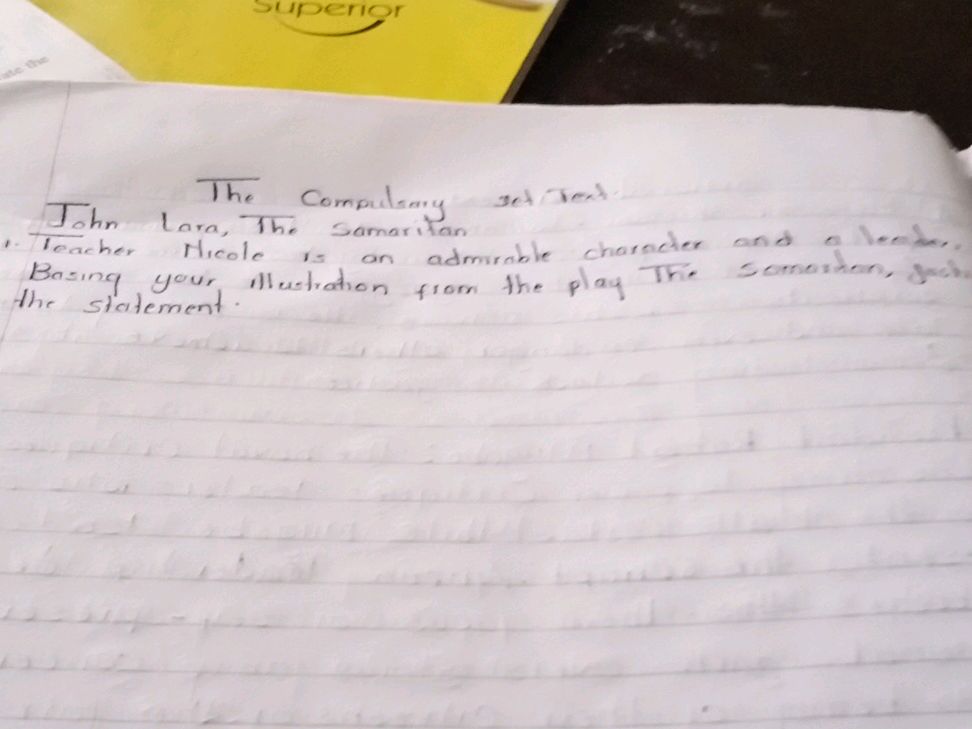 Superior
ate the
The Compulsary set Text.
John Lara, The Samaritan
1. Teacher Nicole is an admirable character and a leader.
Basing your illustration from the play The Samaritan,
the statement.